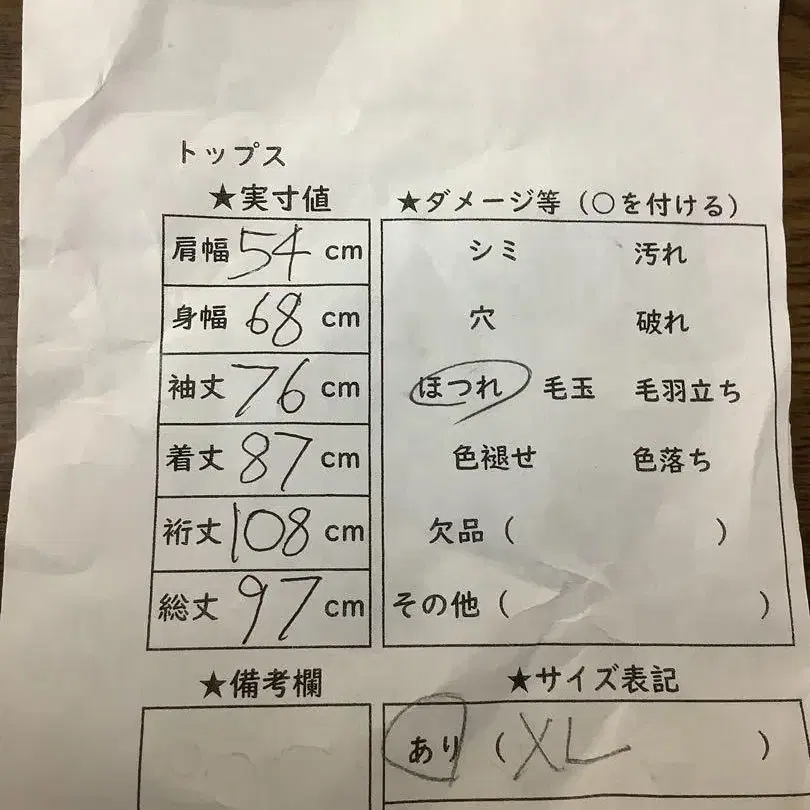 トップス
★実寸値
肩幅 54 cm
身幅 68 cm
袖丈 76 cm
着丈 87 cm
裄丈 108 cm
総丈 97 cm
★ダメージ等（○を付ける）
シミ 汚れ
穴 破れ
ほつれ 毛玉 毛羽立ち
色褪せ 色落ち
欠品（ ）
その他（ ）
★備考欄
★サイズ表記
あり（XL）